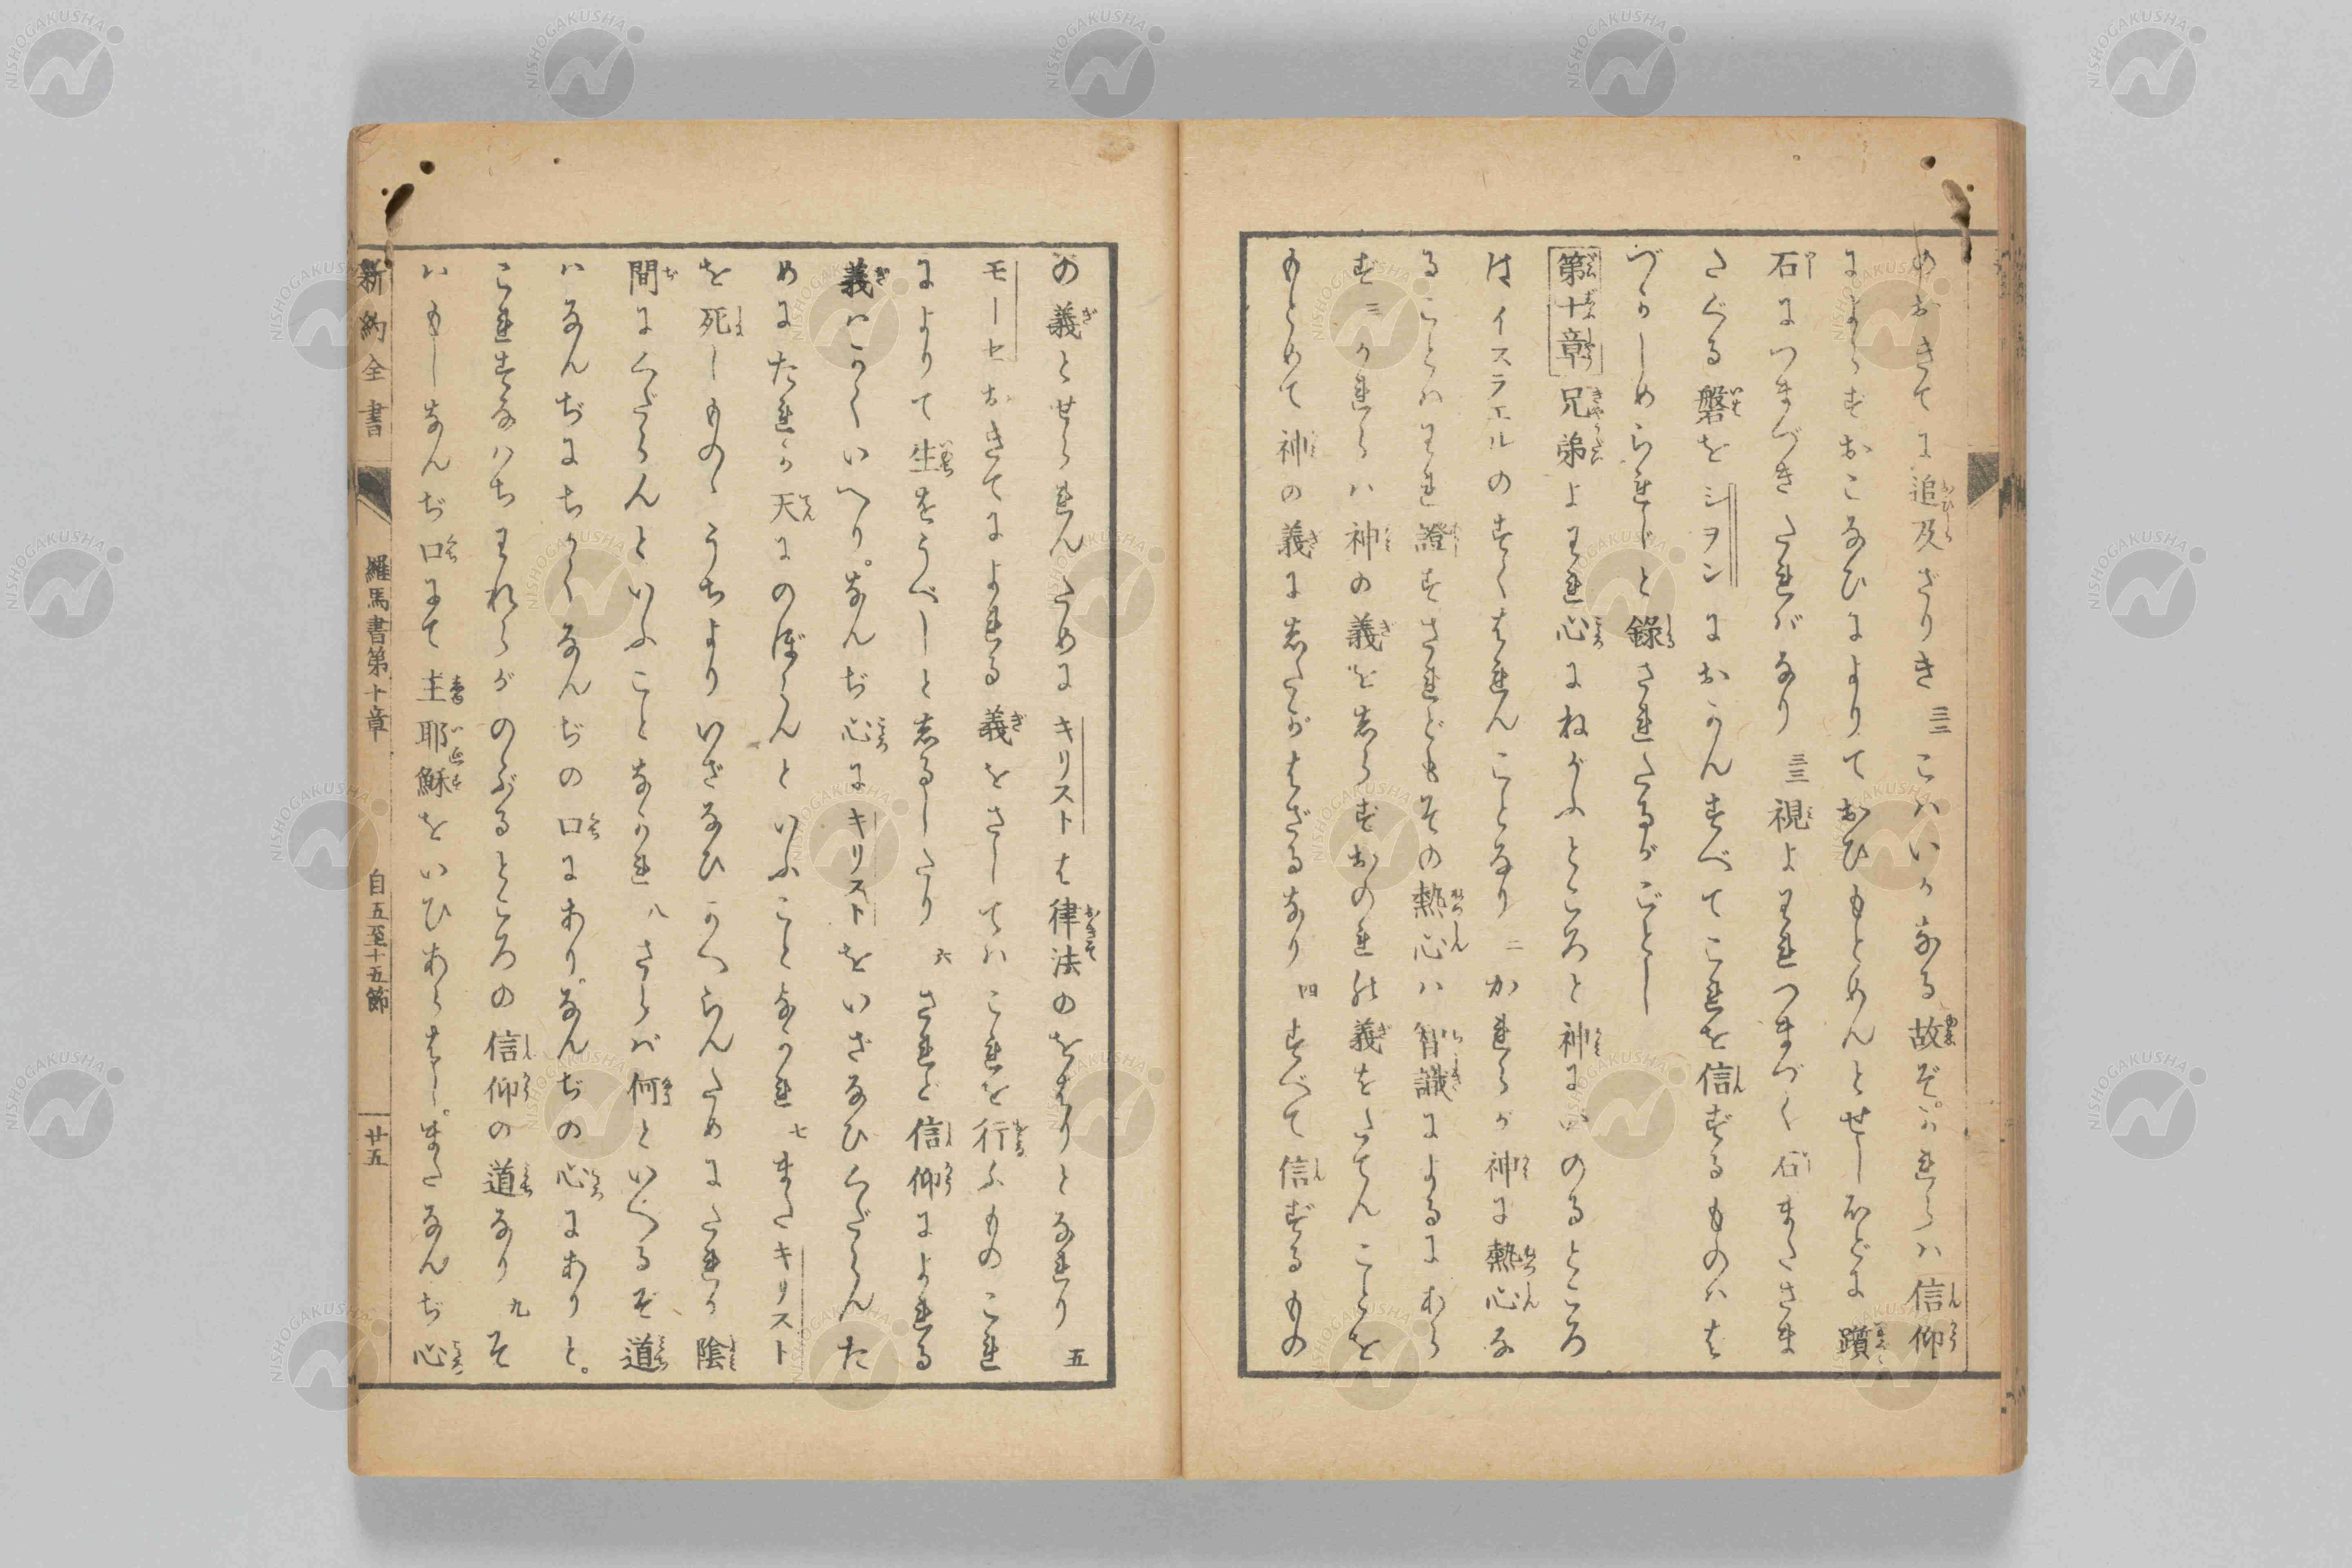 のおきてに追及ざりき 三二 こハいかなる故ぞ。かれらハ信仰
によらずおこなひによりておひもとめんとせしほどに躓
石につまづきたれバなり 三三 視よわれつまづく石またさま
たぐる磐をシヲンにおかんすべてこれを信ずるものハは
づかしめられじと錄されたるがごとし
第十章 兄弟よわれ心にねがふところと神にいのるところ
はイスラエルのすくはれんことなり 二 かれらが神に熱心な
ることハわれ證すされどもその熱心ハ智識によるにあら
ず 三 かれらハ神の義をしらずおのれの義をたてんことを
もとめて神の義にしたがはざるなり 四 すべて信ずるもの
の義とせられんためにキリストは律法のをはりとなれり 五
モーセおきてによれる義をさしてハこれを行ふものこれ
によりて生をうべしとしるしたり 六 されど信仰によれる
義ハかくいへり。なんぢ心にキリストをいざなひくだらんた
めにたれか天にのぼらんといふことなかれ 七 またキリスト
を死しものゝうちよりいざなひかへらんためにたれか陰
間にくだらんといふことなかれ 八 さらバ何といへるぞ道
ハなんぢにちかくなんぢの口にあり。なんぢの心にありと。
これすなハちわれらがのぶるところの信仰の道なり 九 そ
ハもしなんぢ口にて主耶穌をいひあらはし。またなんぢ心
新約全書 羅馬書第十章 自五至十五節 廿五